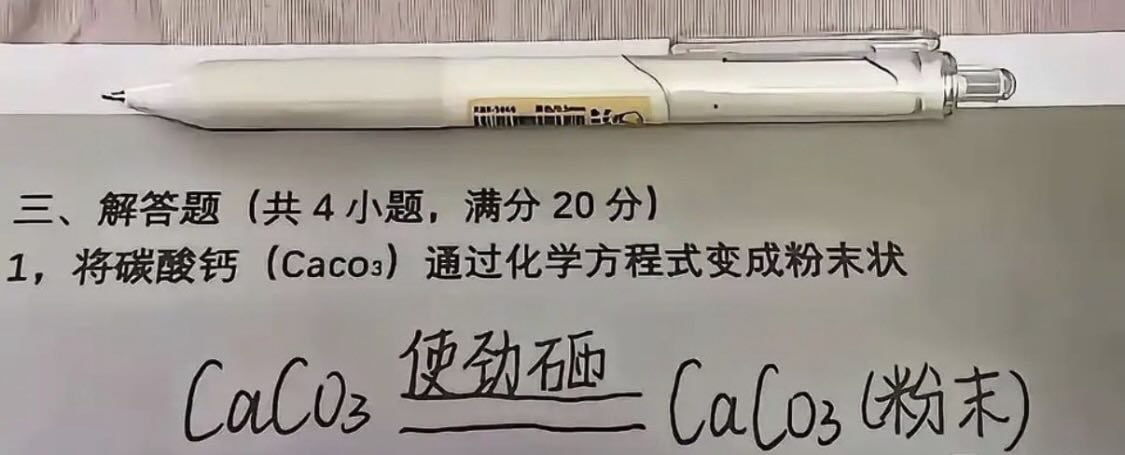 三、解答题（共 4 小题，满分 20 分）
1，将碳酸钙（Caco₃）通过化学方程式变成粉末状
使劲砸
CaCO₃ ══ CaCO₃(粉末)